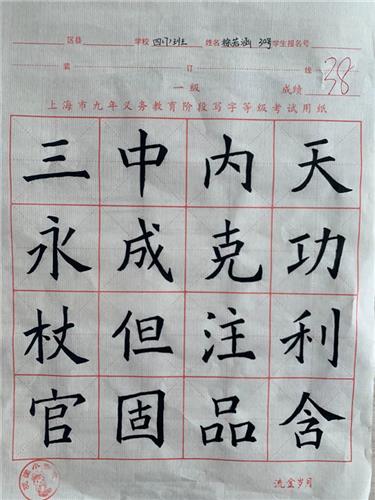 区县 学校 四(1)班 姓名 徐若涵 30号 学生报名号
装 订 线
一级 成绩 38
上海市九年义务教育阶段写字等级考试用纸
三中内天
永成克功
杖但注利
官固品含
流金岁月